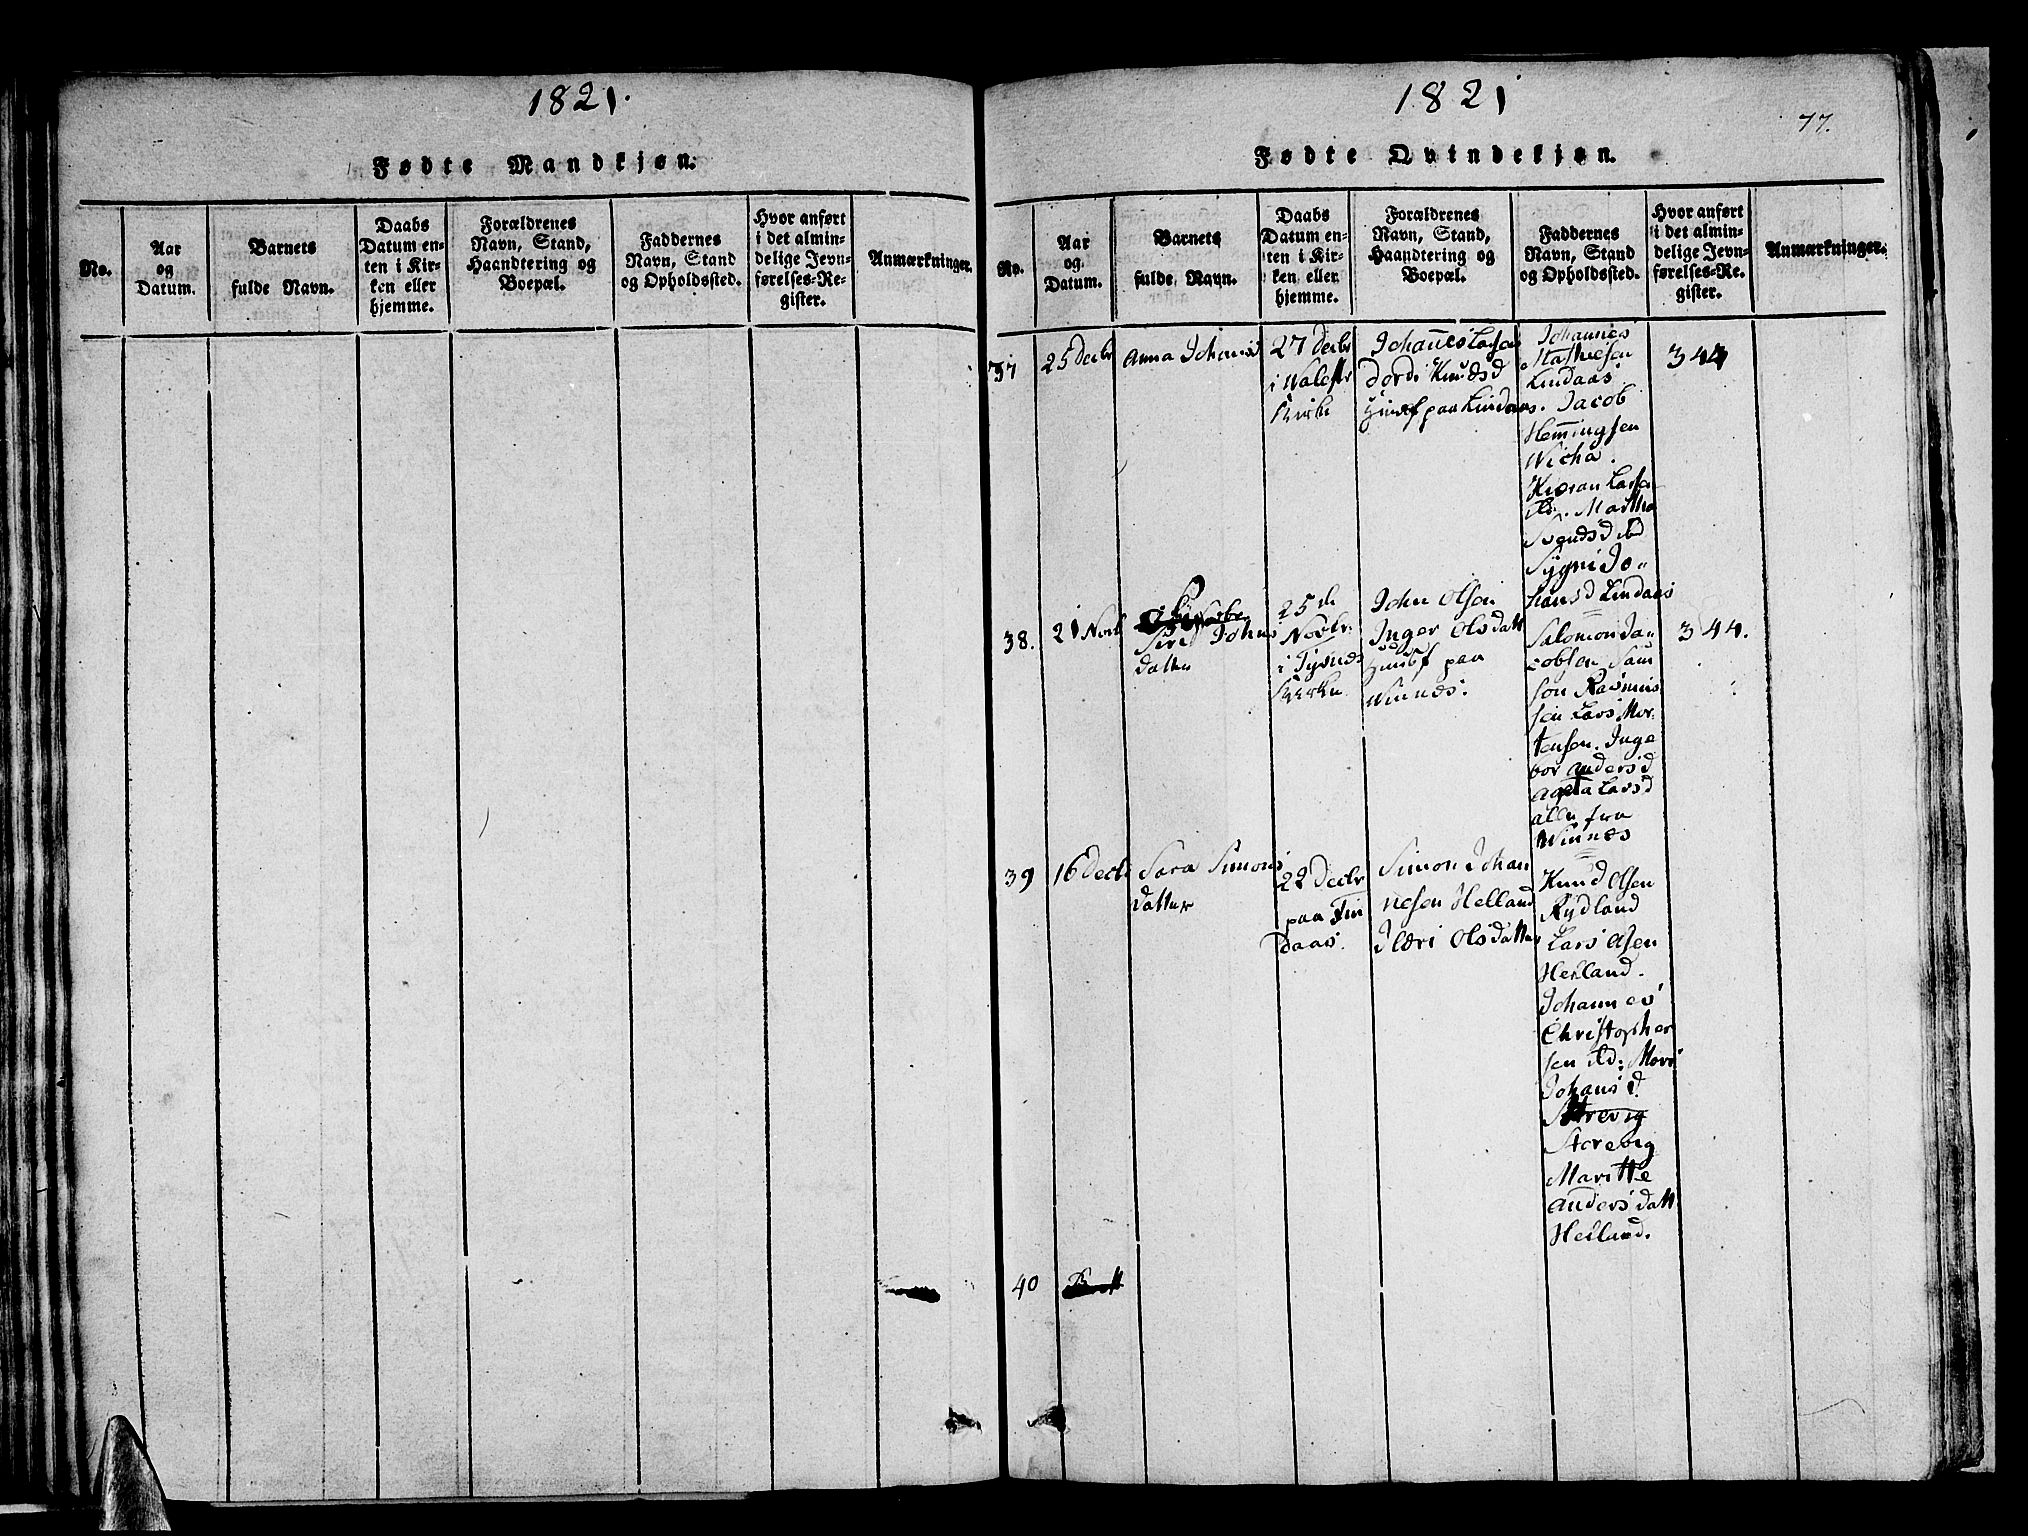 1821.
Fødte Mandkjøn.
No.
Aar
og
Datum.
Barnets
fulde Navn.
Daabs
Datum en-
ten i Kir-
ken eller
hjemme.
Forældrenes
Navn, Stand,
Haandtering og
Boepæl.
Faddernes
Navn, Stand
og Opholdssted.
Hvor anført
i det almin-
delige Jevn-
førelses-Re-
gister.
Anmærkninger.
1821
77.
Fødte Qvindekjøn.
No.
Aar
og
Datum.
Barnets
fulde Navn.
Daabs
Datum en-
ten i Kir-
ken eller
hjemme.
Forældrenes
Navn, Stand,
Haandtering og
Boepæl.
Faddernes
Navn, Stand
og Opholdssted.
Hvor anført
i det almin-
delige Jevn-
førelses-Re-
gister.
Anmærkninger.
37
25 Decbr
Anna Johans
27 Decbr
i
Kirke
Johanes Larsen
Dordi Knudsd
paa Lindaas.
Johannes
Mathiesen
Lindaas
Jacob
Hemmingsen
Larsen
Martha
Svendsd ibd
Sygni Jo-
hansd Lindaas
344
38.
21 Novb
Siri Johns
datter
25 de
Novbr.
i Tysnes
Kirke
John Olsen
Inger Olsdatt
paa
Winnes.
Salomon Ja-
cobsen Sam
son Rasmus
sen Lars Mor-
tensen. Inge
bor Andersd
Larsd
alle fra
Winnes
344.
39
16 Decb
Sara Simons
datter
22 Decbr
paa Fin
daas.
Simon Johan
nesen Helland
Olsdatter
Knud Olsen
Rydland
Lars Olsen
Helland.
Johannes
Christopher
sen
Johansd
Storevig
Maritte
Andersdatt
Helland.
40